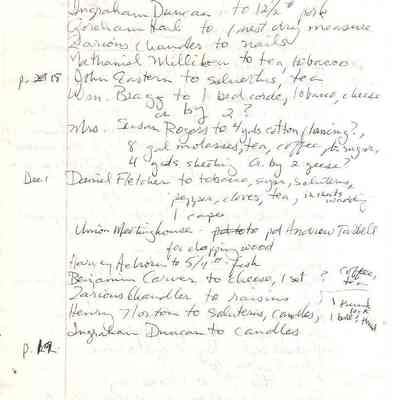 Ingraham Duncan to 12 1/2 # pork
Goreham Hall to 1 mest dry measure
Zarious Chandler to nails
Nathaniel Milliken to tea, tobacco
p. 18 John Eastern to saluertus, tea
Wm. Bragg to 1 bed corde, tobacco, cheese
a by 2?
Mrs. Susan Rogers to 4 yds cotton flaning?,
8 gal molasses, tea, coffee, sugar,
4 yds sheeting a. by 2 geese?
Dec. 1 Daniel Fletcher to tobacco, sugar, saluterus,
pepper, cloves, tea,
1 caper
Union Meetinghouse - pd Andrew Tarbell
for chopping wood
Harvey Achorn to 5/4 fish
Benjamin Carver to cheese, 1 set ? coffee, tea
Zarious Chandler to raisins
Henry Norton to saluterus, candles, 1 trunk lock
Ingraham Duncan to candles
p. 19